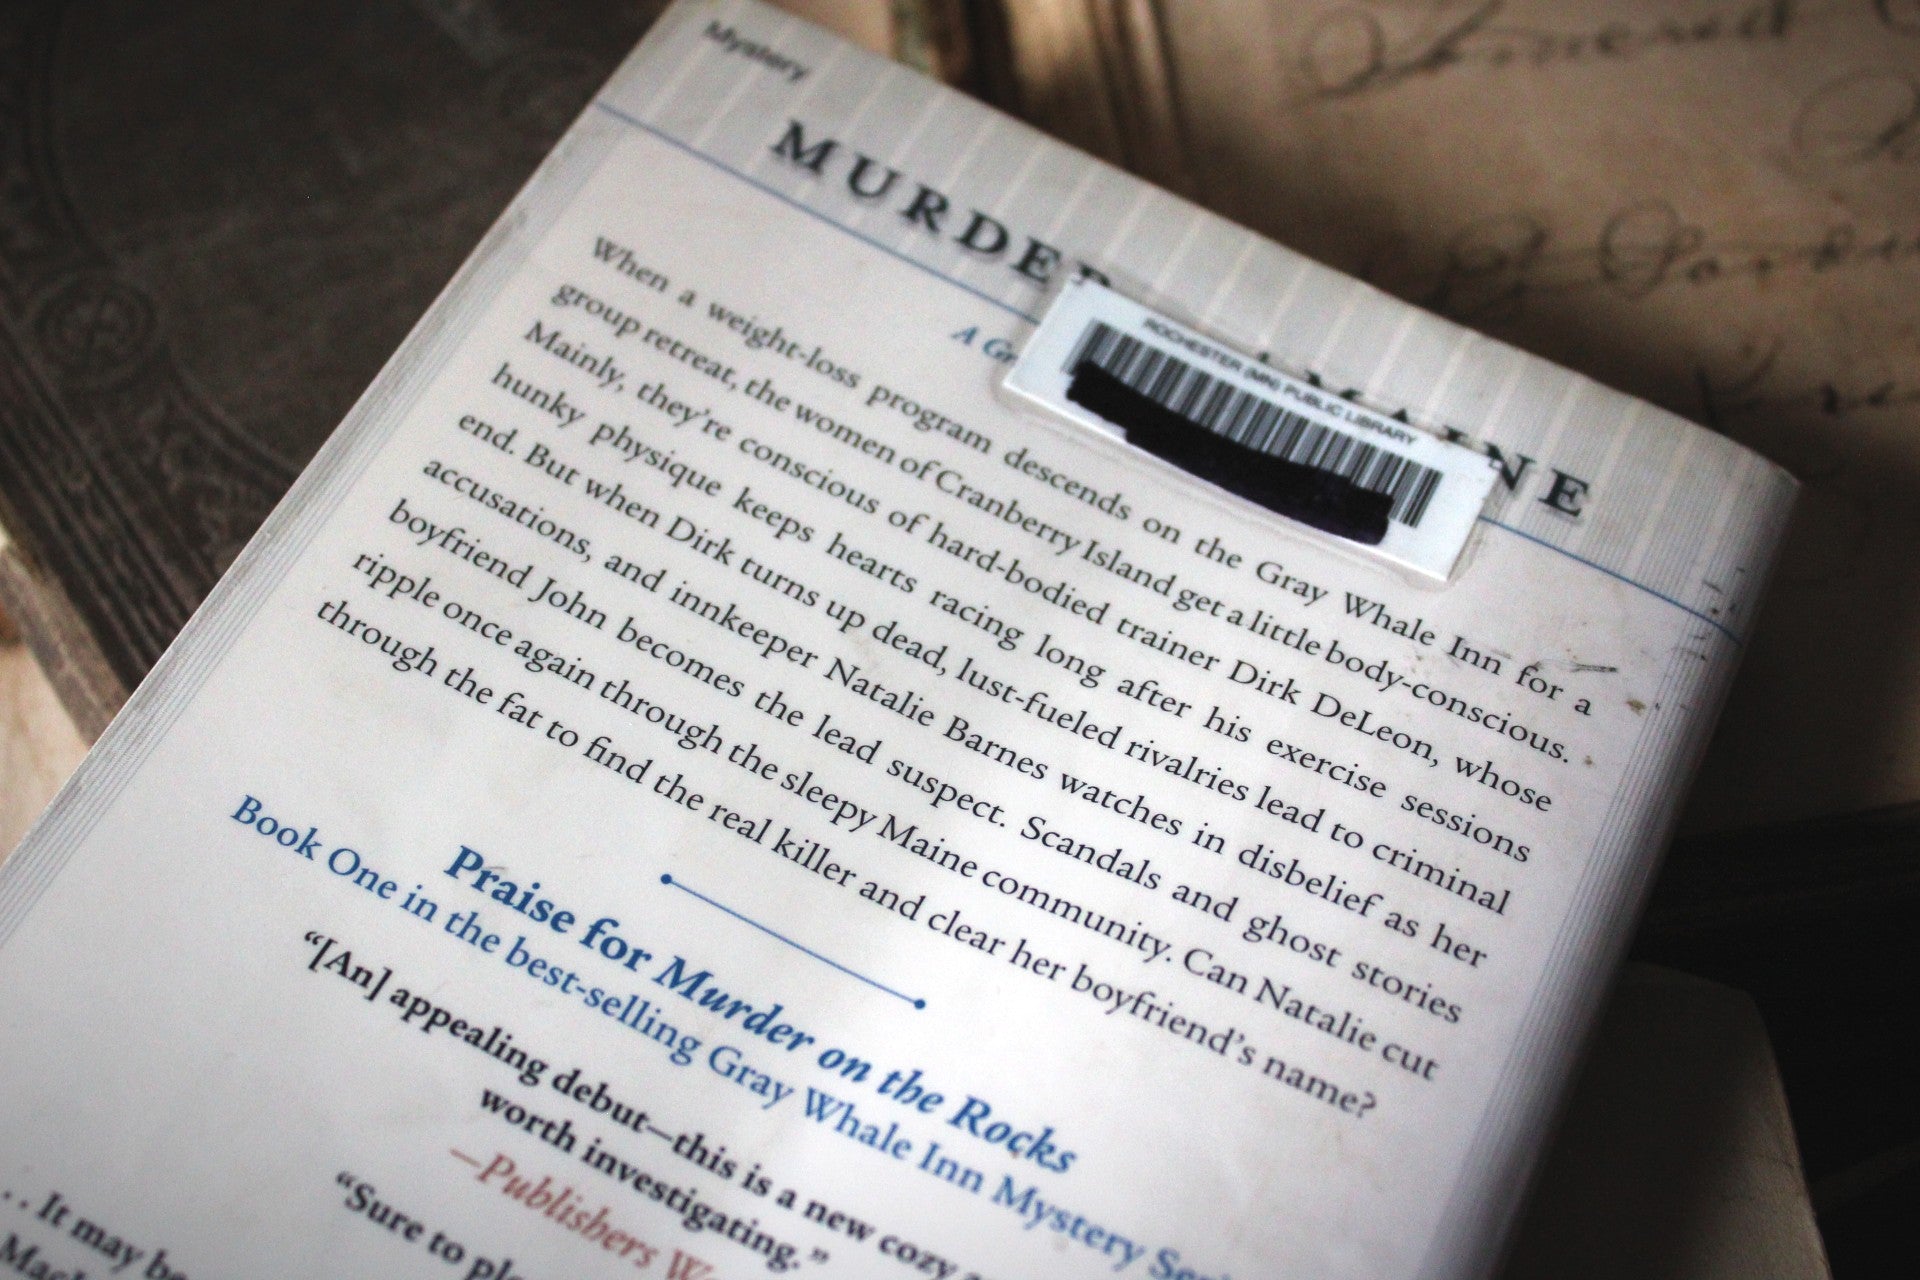 Mystery
MURDER MAINE
A Gr
ROCHESTER (MN) PUBLIC LIBRARY
When a weight-loss program descends on the Gray Whale Inn for a
group retreat, the women of Cranberry Island get a little body-conscious.
Mainly, they're conscious of hard-bodied trainer Dirk DeLeon, whose
hunky physique keeps hearts racing long after his exercise sessions
end. But when Dirk turns up dead, lust-fueled rivalries lead to criminal
accusations, and innkeeper Natalie Barnes watches in disbelief as her
boyfriend John becomes the lead suspect. Scandals and ghost stories
ripple once again through the sleepy Maine community. Can Natalie cut
through the fat to find the real killer and clear her boyfriend's name?
Praise for Murder on the Rocks
Book One in the best-selling Gray Whale Inn Mystery Seri
“[An] appealing debut—this is a new cozy
worth investigating.”
—Publishers We
“Sure to ple
. . It may be
Mach